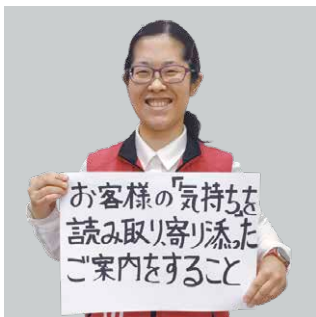 お客様の「気持ち」を
読み取り、寄り添った
ご案内をすること